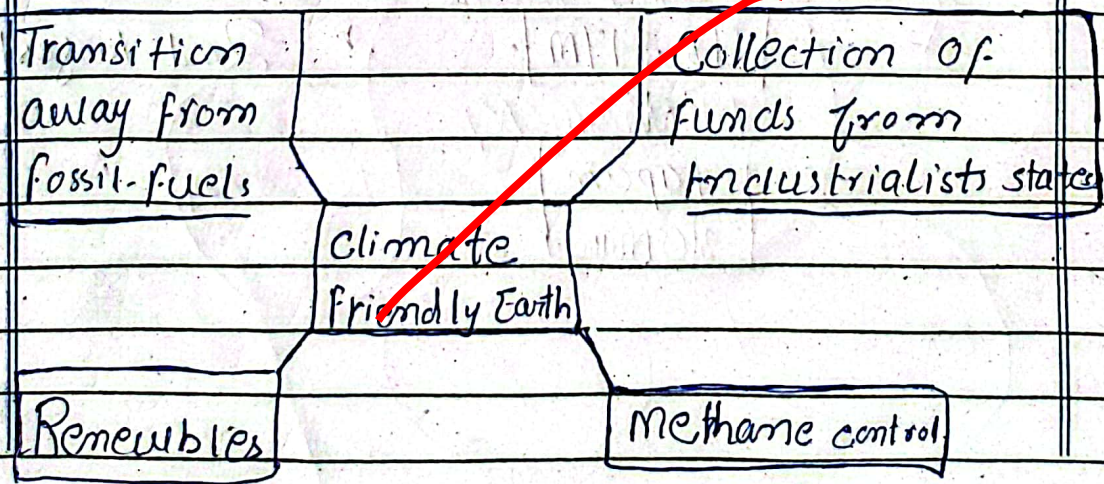 Transition
away from
fossil-fuels
Collection of
funds from
Industrialists states
Climate
Friendly Earth
Renewbles
Methane control